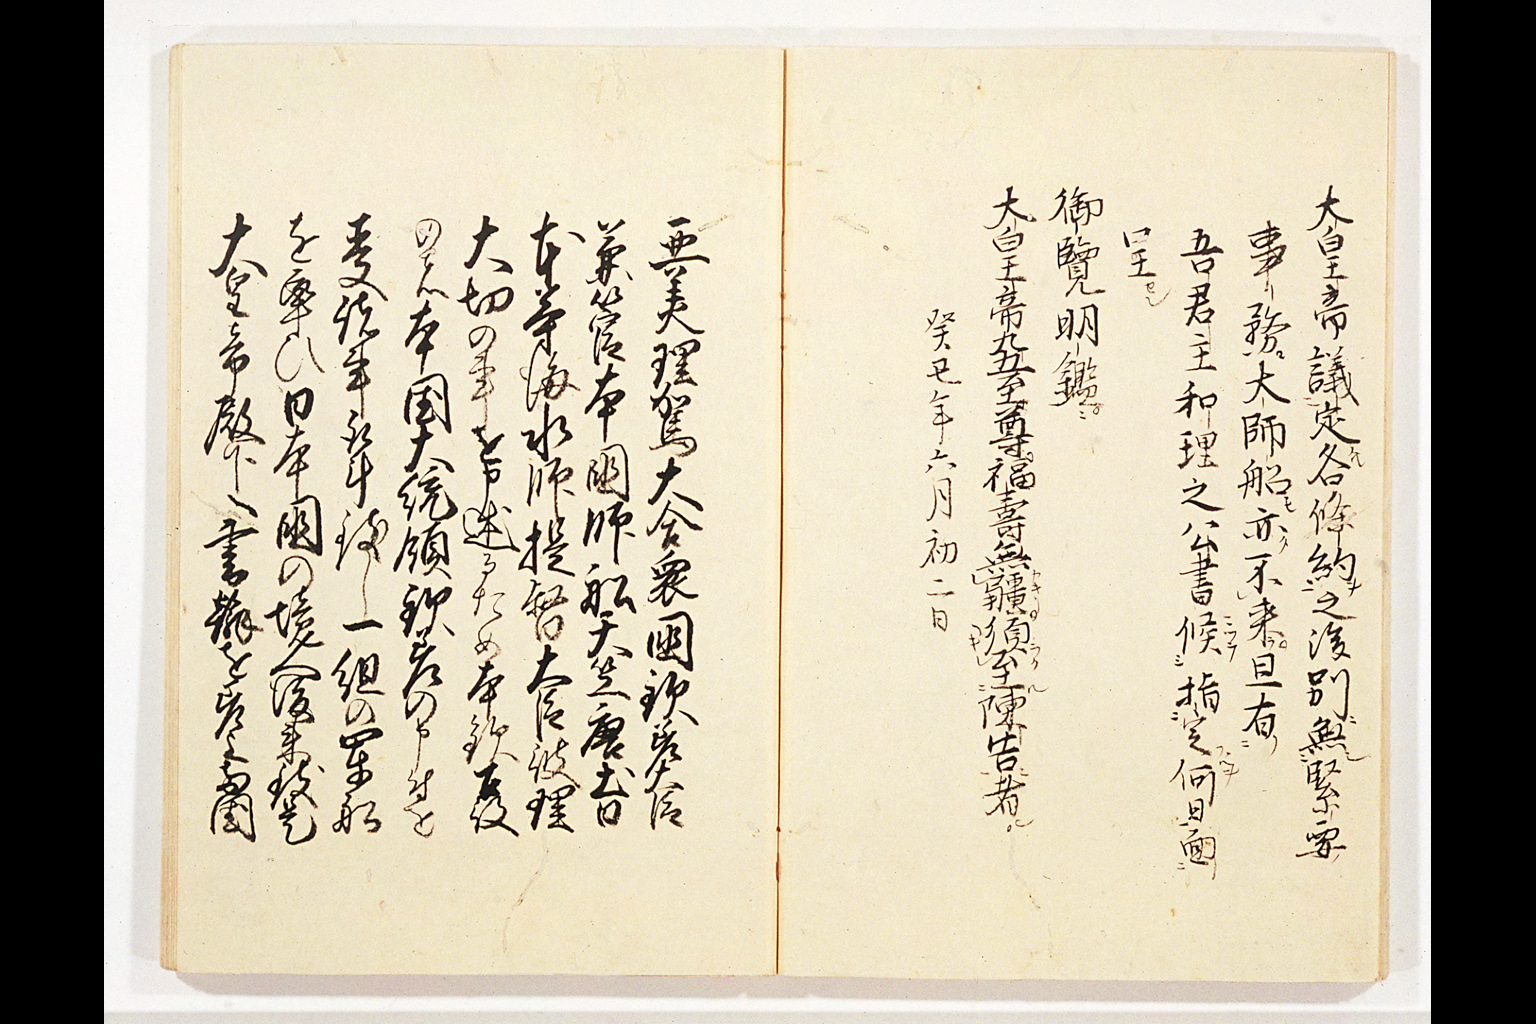 大皇帝議定各條約之後別無緊要
事務大師船亦不来且有
吾君主和理之公書候指定何日面
呈
御覽明鑑
大皇帝九五至尊福壽無疆須至陳告者
癸丑年六月初二日
亜美理駕大合衆國欽差大臣
兼管本國師船天竺唐土日
本等海水師提督大臣彼理
大切の事を申述るため本欽差役
のもの本国大統領欽差の申付を
受諸事取斗致し一組の軍船
を率ひ日本國の境へ後来致是
大皇帝殿下へ書翰を差上両国